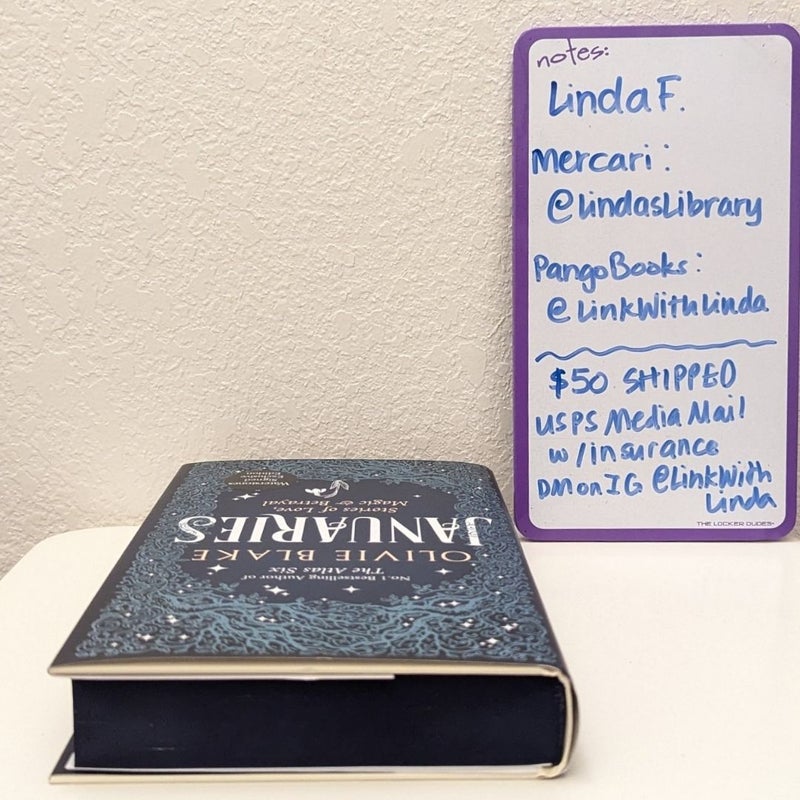 notes:
Linda F.
Mercari:
@LindasLibrary
PangoBooks:
@LinkWithLinda
$50 SHIPPED
USPS Media Mail
w/insurance
DM on IG @LinkWith
Linda
THE LOCKER DUDES
No.1 Bestselling Author of
The Atlas Six
OLIVIE BLAKE
JANUARIES
Stories of Love,
Magic & Betrayal
Waterstones
Exclusive
Signed
Edition